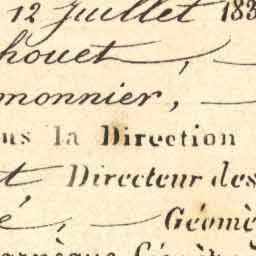 12 Juillet 183
houet,
monnier,
us la Direction
t Directeur des
é, Géomè